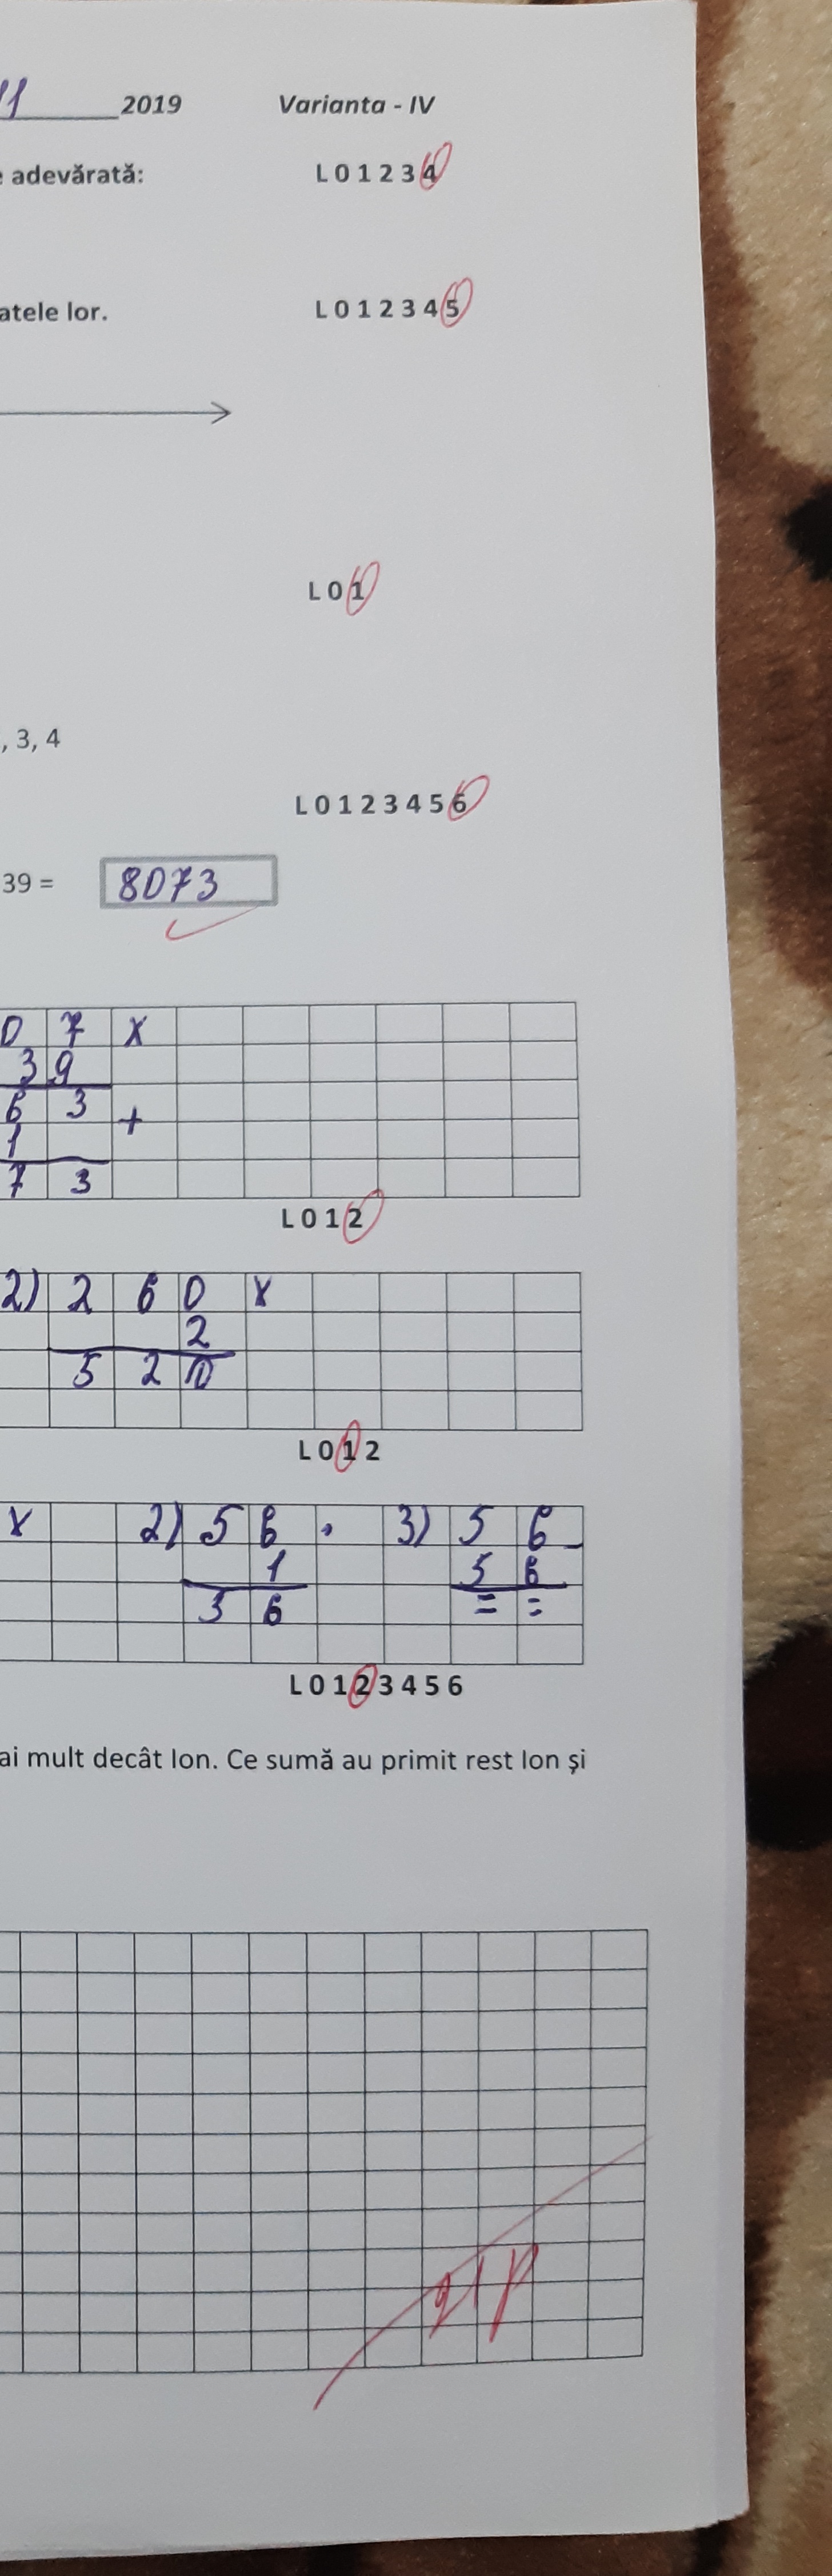 11 2019 Varianta - IV
adevărată: L 0 1 2 3 4
atele lor. L 0 1 2 3 4 5
L 0 1
, 3, 4
L 0 1 2 3 4 5 6
39 = 8073
0 7 x
3 9
6 3 +
1
7 3
L 0 1 2
2) 2 6 0 x
2
5 2 0
L 0 1 2
x 2) 5 6 · 3) 5 6 -
1 5 6
6 = =
L 0 1 2 3 4 5 6
ai mult decât Ion. Ce sumă au primit rest Ion și
21p